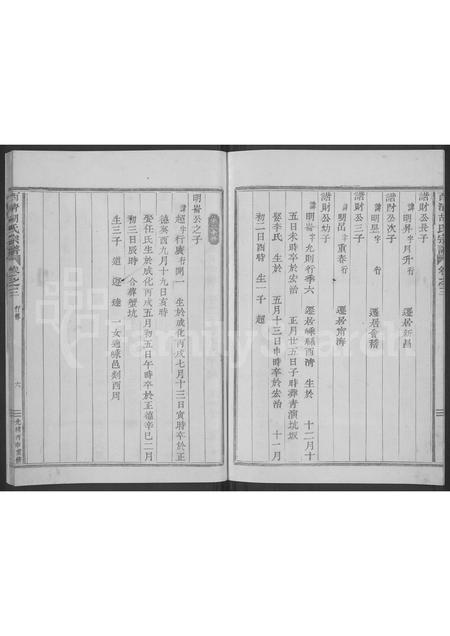 諧財公長子
諱明昇字月升行 遷居新昌
諧財公次子
諱明昱字 行 遷居會稽
諧財公三子
諱明呂字重春行 遷居南海
諧財公幼子
諱明崙字允則行季六 遷居嵊縣西清 生於 十二月十
五日未時卒於宏治 正月廿五日子時葬青演坑坂
娶李氏 生於 五月十三日巾時卒於宏治 十一月
初二日酉時 生一子 超
明崙公之子
諱超字 行廣開一 生於成化丙戌七月十三日寅時卒於正
德癸酉九月十九日亥時
娶任氏生於成化丙戌五月初五日午時卒於正德辛巳二月
初三日辰時 合葬蟹坑
生三子 道 遊 達 一女適嵊邑剡西周
西清胡氏宗譜 卷之三 行傳 六 光緒丙申重修
FamilySearch